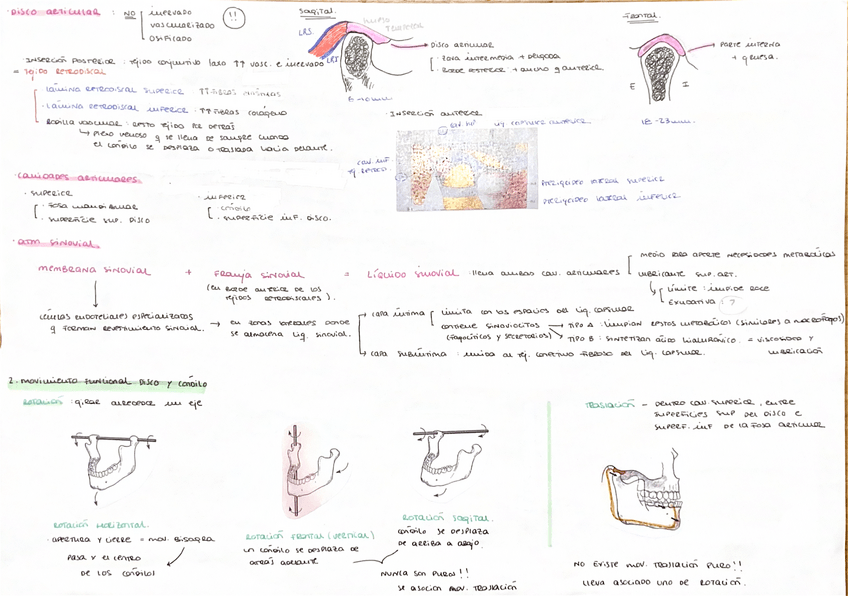 DISCO ARTICULAR : NO inervado
vascularizado
osificado
!!
SAGITAL
LRS
LRI
DISCO ARTICULAR
zona intermedia + delgada
FRONTAL
PARTE INTERNA
+ gruesa.
E
I
Inserción posterior : tejido conjuntivo laxo ↑↑ vasc. e inervado
= TEJIDO RETRODISCAL
LÁMINA RETRODISCAL SUPERIOR ↑↑ fibras
LÁMINA RETRODISCAL INFERIOR : ↑↑ fibras colágeno
→ plexo venoso q se llena de sangre cuando
el cóndilo se desplaza o traslada hacia delante.
· INSERCIÓN ANTERIOR
PTERIGOIDEO LATERAL SUPERIOR
PTERIGOIDEO LATERAL INFERIOR
· CAVIDADES ARTICULARES
· SUPERIOR
· Fosa mandibular
· SUPERFICIE SUP. DISCO
· INFERIOR
· cóndilo
· SUPERFICIE INF. DISCO.
· ATM SINOVIAL
MEMBRANA SINOVIAL + FRANJA SINOVIAL = LÍQUIDO SINOVIAL : llena ambas cav. articulares
(en borde anterior de los
tejidos retrodiscales).
medio para aporte necesidades metabólicas
lubricante sup. art.
Límite : impide roce
Exudativa (?)
células endoteliales especializadas
q forman revestimiento sinovial.
→ en zonas laterales donde
se almacena líq. sinovial.
→ capa íntima
limita con los espacios del líq. capsular
contiene sinoviocitos → TIPO A : limpian restos metabólicos (similares a macrófagos)
(fagocíticos y secretorios) → TIPO B : sintetizan ácido hialurónico. = viscosidad y
lubricación
→ capa subíntima : unida al tej. conectivo fibroso del lig. capsular.
2. MOVIMIENTO FUNCIONAL DISCO Y CÓNDILO
ROTACIÓN : girar alrededor un eje
TRASLACIÓN - DENTRO CAV. SUPERIOR, ENTRE
SUPERFICIES SUP DEL DISCO E
SUPERF. INF DE LA FOSA ARTICULAR
ROTACIÓN HORIZONTAL
· APERTURA Y CIERRE = MOV. BISAGRA
PASA X EL CENTRO
DE LOS CÓNDILOS
ROTACIÓN FRONTAL (VERTICAL)
un cóndilo se desplaza de
atrás adelante
ROTACIÓN SAGITAL
cóndilo se desplaza
de arriba a abajo.
NUNCA SON PUROS!!
se asocian mov. traslación
NO EXISTE MOV. TRASLACIÓN PURO!!
LLEVA ASOCIADO UNO DE ROTACIÓN.